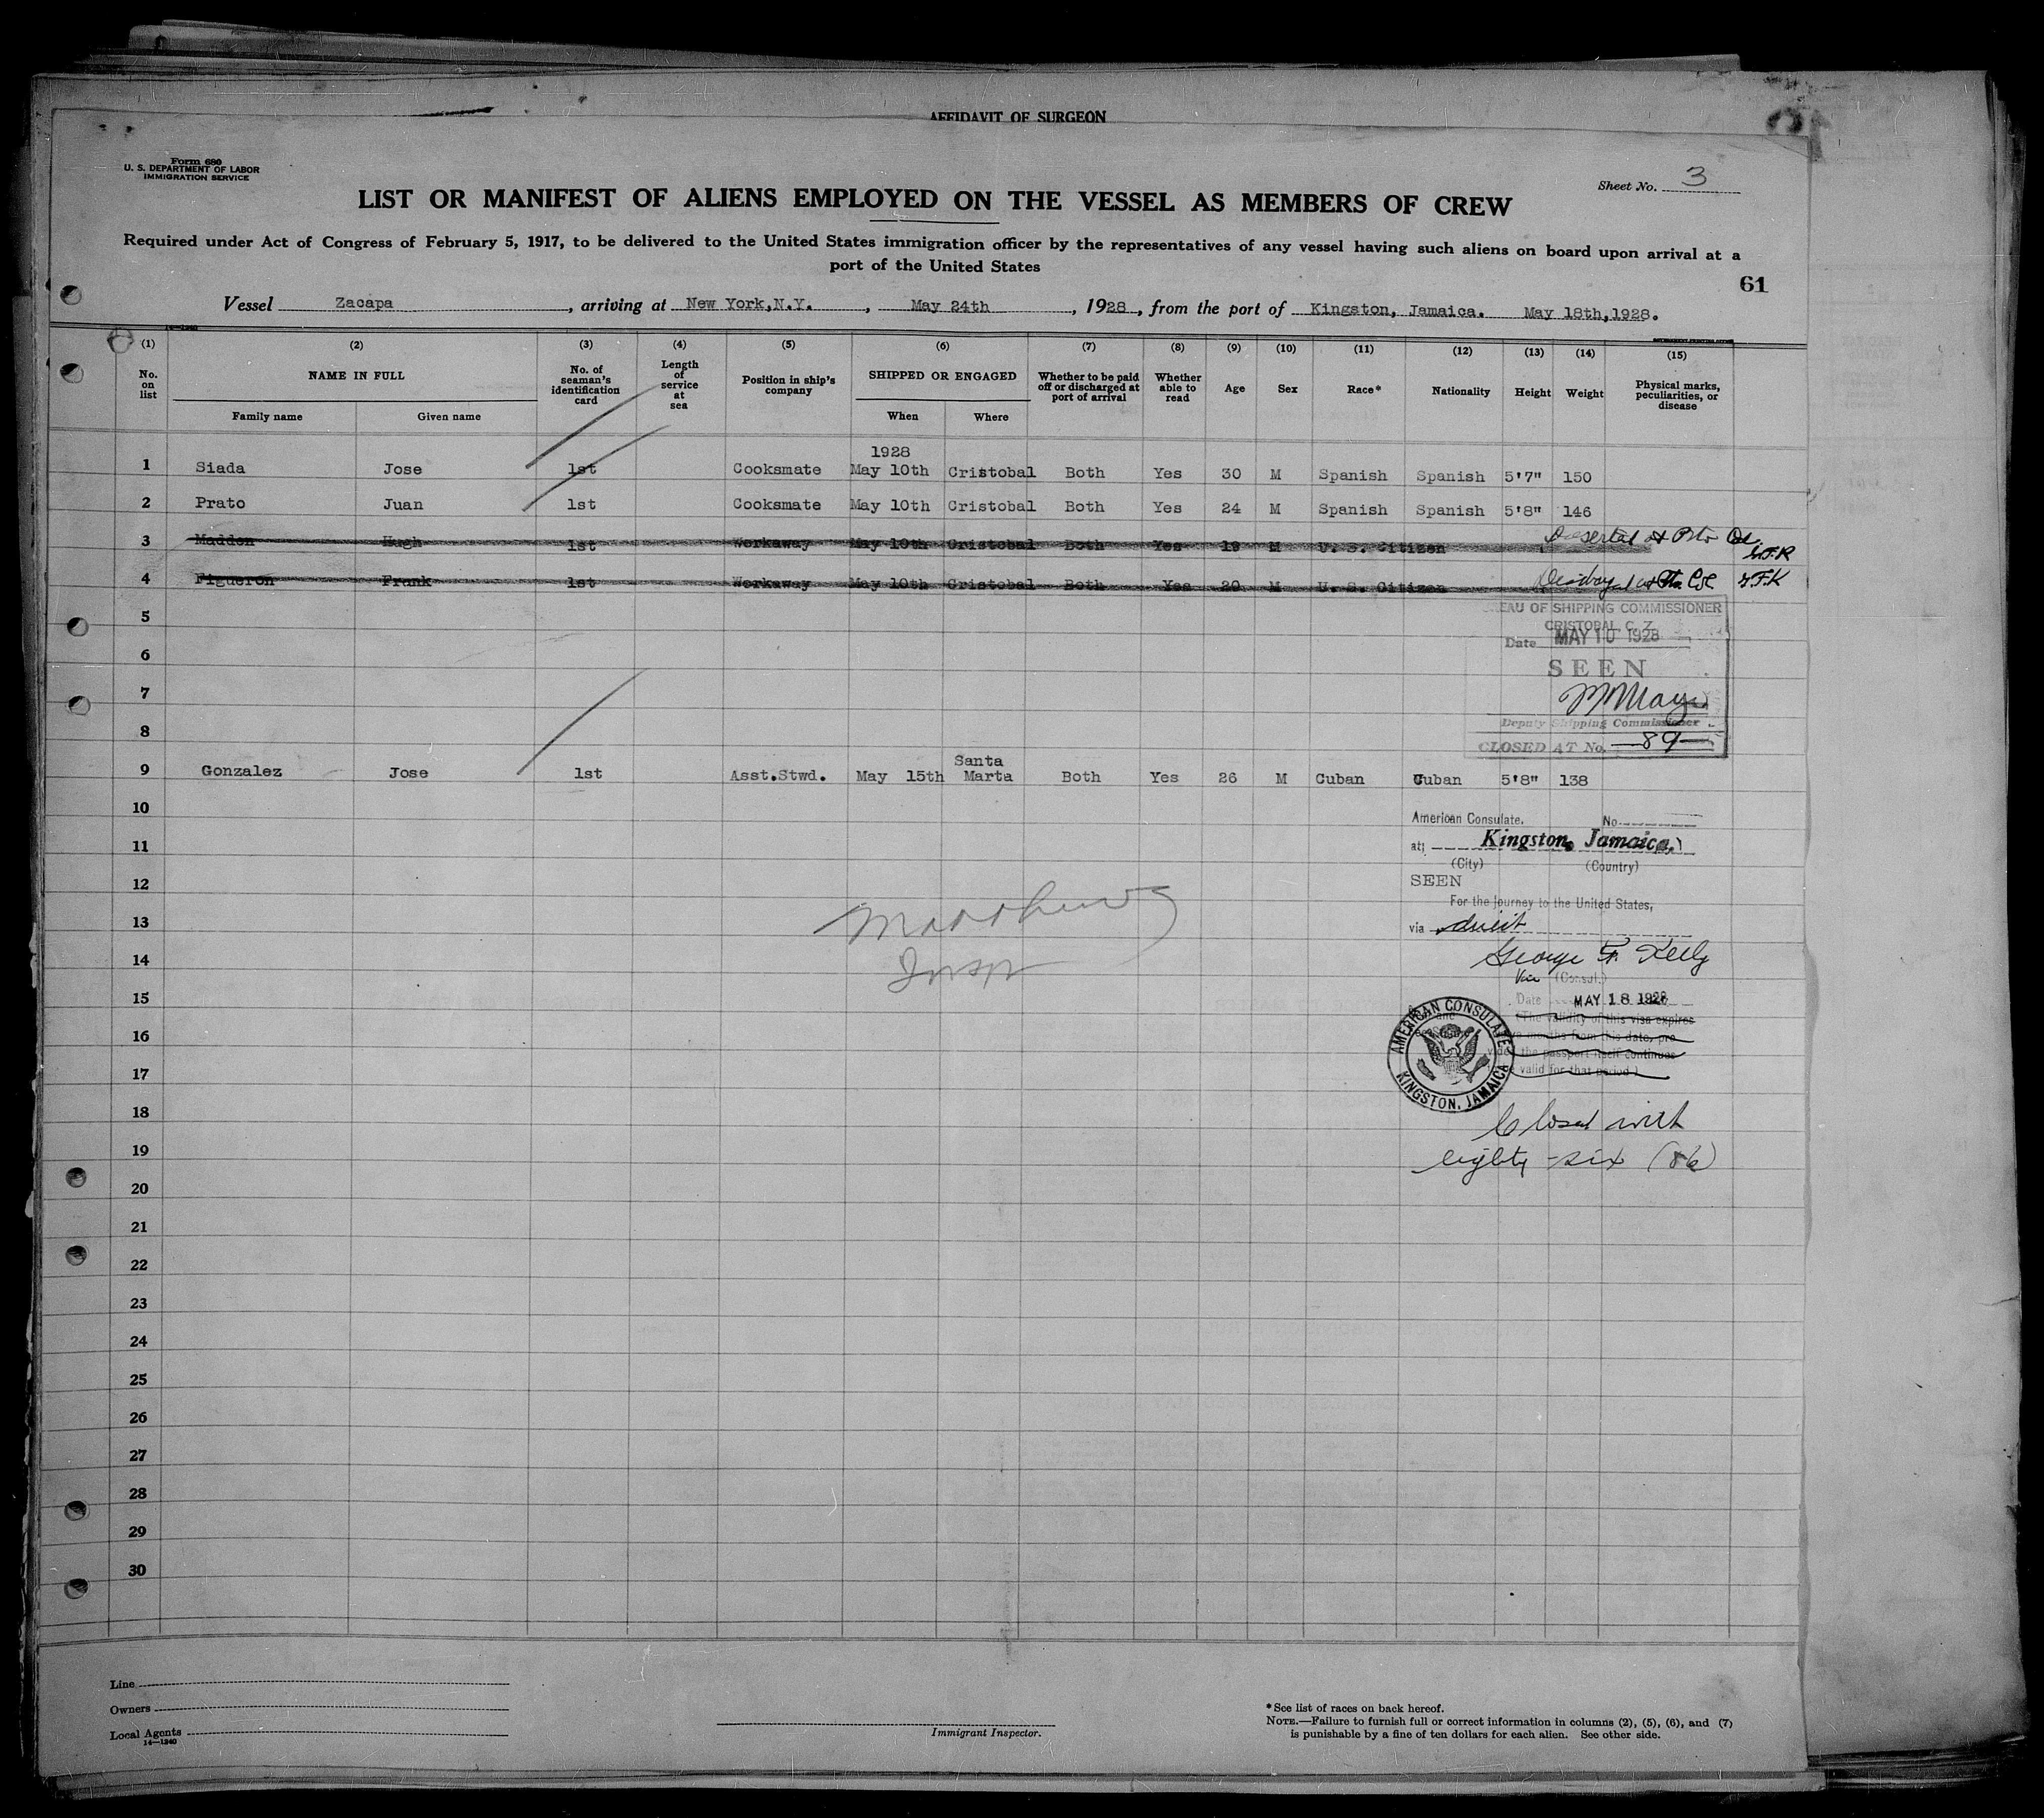 AFFIDAVIT OF SURGEON
Form 680
U. S. DEPARTMENT OF LABOR
IMMIGRATION SERVICE
Sheet No. 3
LIST OR MANIFEST OF ALIENS EMPLOYED ON THE VESSEL AS MEMBERS OF CREW
Required under Act of Congress of February 5, 1917, to be delivered to the United States immigration officer by the representatives of any vessel having such aliens on board upon arrival at a
port of the United States
61
Vessel Zacapa, arriving at New York,N.Y., May 24th, 1928, from the port of Kingston, Jamaica. May 18th,1928.
14—1240
(1) (2) (3) (4) (5) (6) (7) (8) (9) (10) (11) (12) (13) (14) (15)
No. on list
NAME IN FULL
Family name Given name
No. of seaman's identification card
Length of service at sea
Position in ship's company
SHIPPED OR ENGAGED
When Where
Whether to be paid off or discharged at port of arrival
Whether able to read
Age
Sex
Race*
Nationality
Height
Weight
Physical marks, peculiarities, or disease
1928
1 Siada Jose 1st Cooksmate May 10th Cristobal Both Yes 30 M Spanish Spanish 5'7" 150
2 Prato Juan 1st Cooksmate May 10th Cristobal Both Yes 24 M Spanish Spanish 5'8" 146
3 Madden Hugh 1st Workaway May 10th Cristobal Both Yes 19 M U. S. Citizen Deserted at Pto
4 Figueron Frank 1st Workaway May 10th Cristobal Both Yes 20 M U. S. Citizen G.F.K
5
EAU OF SHIPPING COMMISSIONER
CRISTOBAL C. Z.
Date MAY 10 1928
6
SEEN
7
8
Deputy Shipping Commissioner
CLOSED AT No. 89
Santa
9 Gonzalez Jose 1st Asst.Stwd. May 15th Marta Both Yes 26 M Cuban Cuban 5'8" 138
10
American Consulate, No.
11
at Kingston, Jamaica.)
(City) (Country)
12
SEEN
For the journey to the United States,
13
via direct
Matthews
Insp
14
George F. Kelly
Vice (Consul.)
15
Date MAY 18 1928
(The validity of this visa expires
16
months from this date, pro-
the passport itself continues
17
valid for that period.)
AMERICAN CONSULATE
KINGSTON, JAMAICA
18
Closed with
19
eighty-six (86)
20
21
22
23
24
25
26
27
28
29
30
Line
Owners
Local Agents
14—1240
Immigrant Inspector.
*See list of races on back hereof.
NOTE.—Failure to furnish full or correct information in columns (2), (5), (6), and (7)
is punishable by a fine of ten dollars for each alien. See other side.